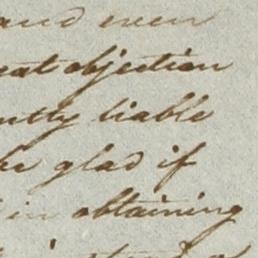 and even
eat objection
ntly liable
be glad if
in obtaining